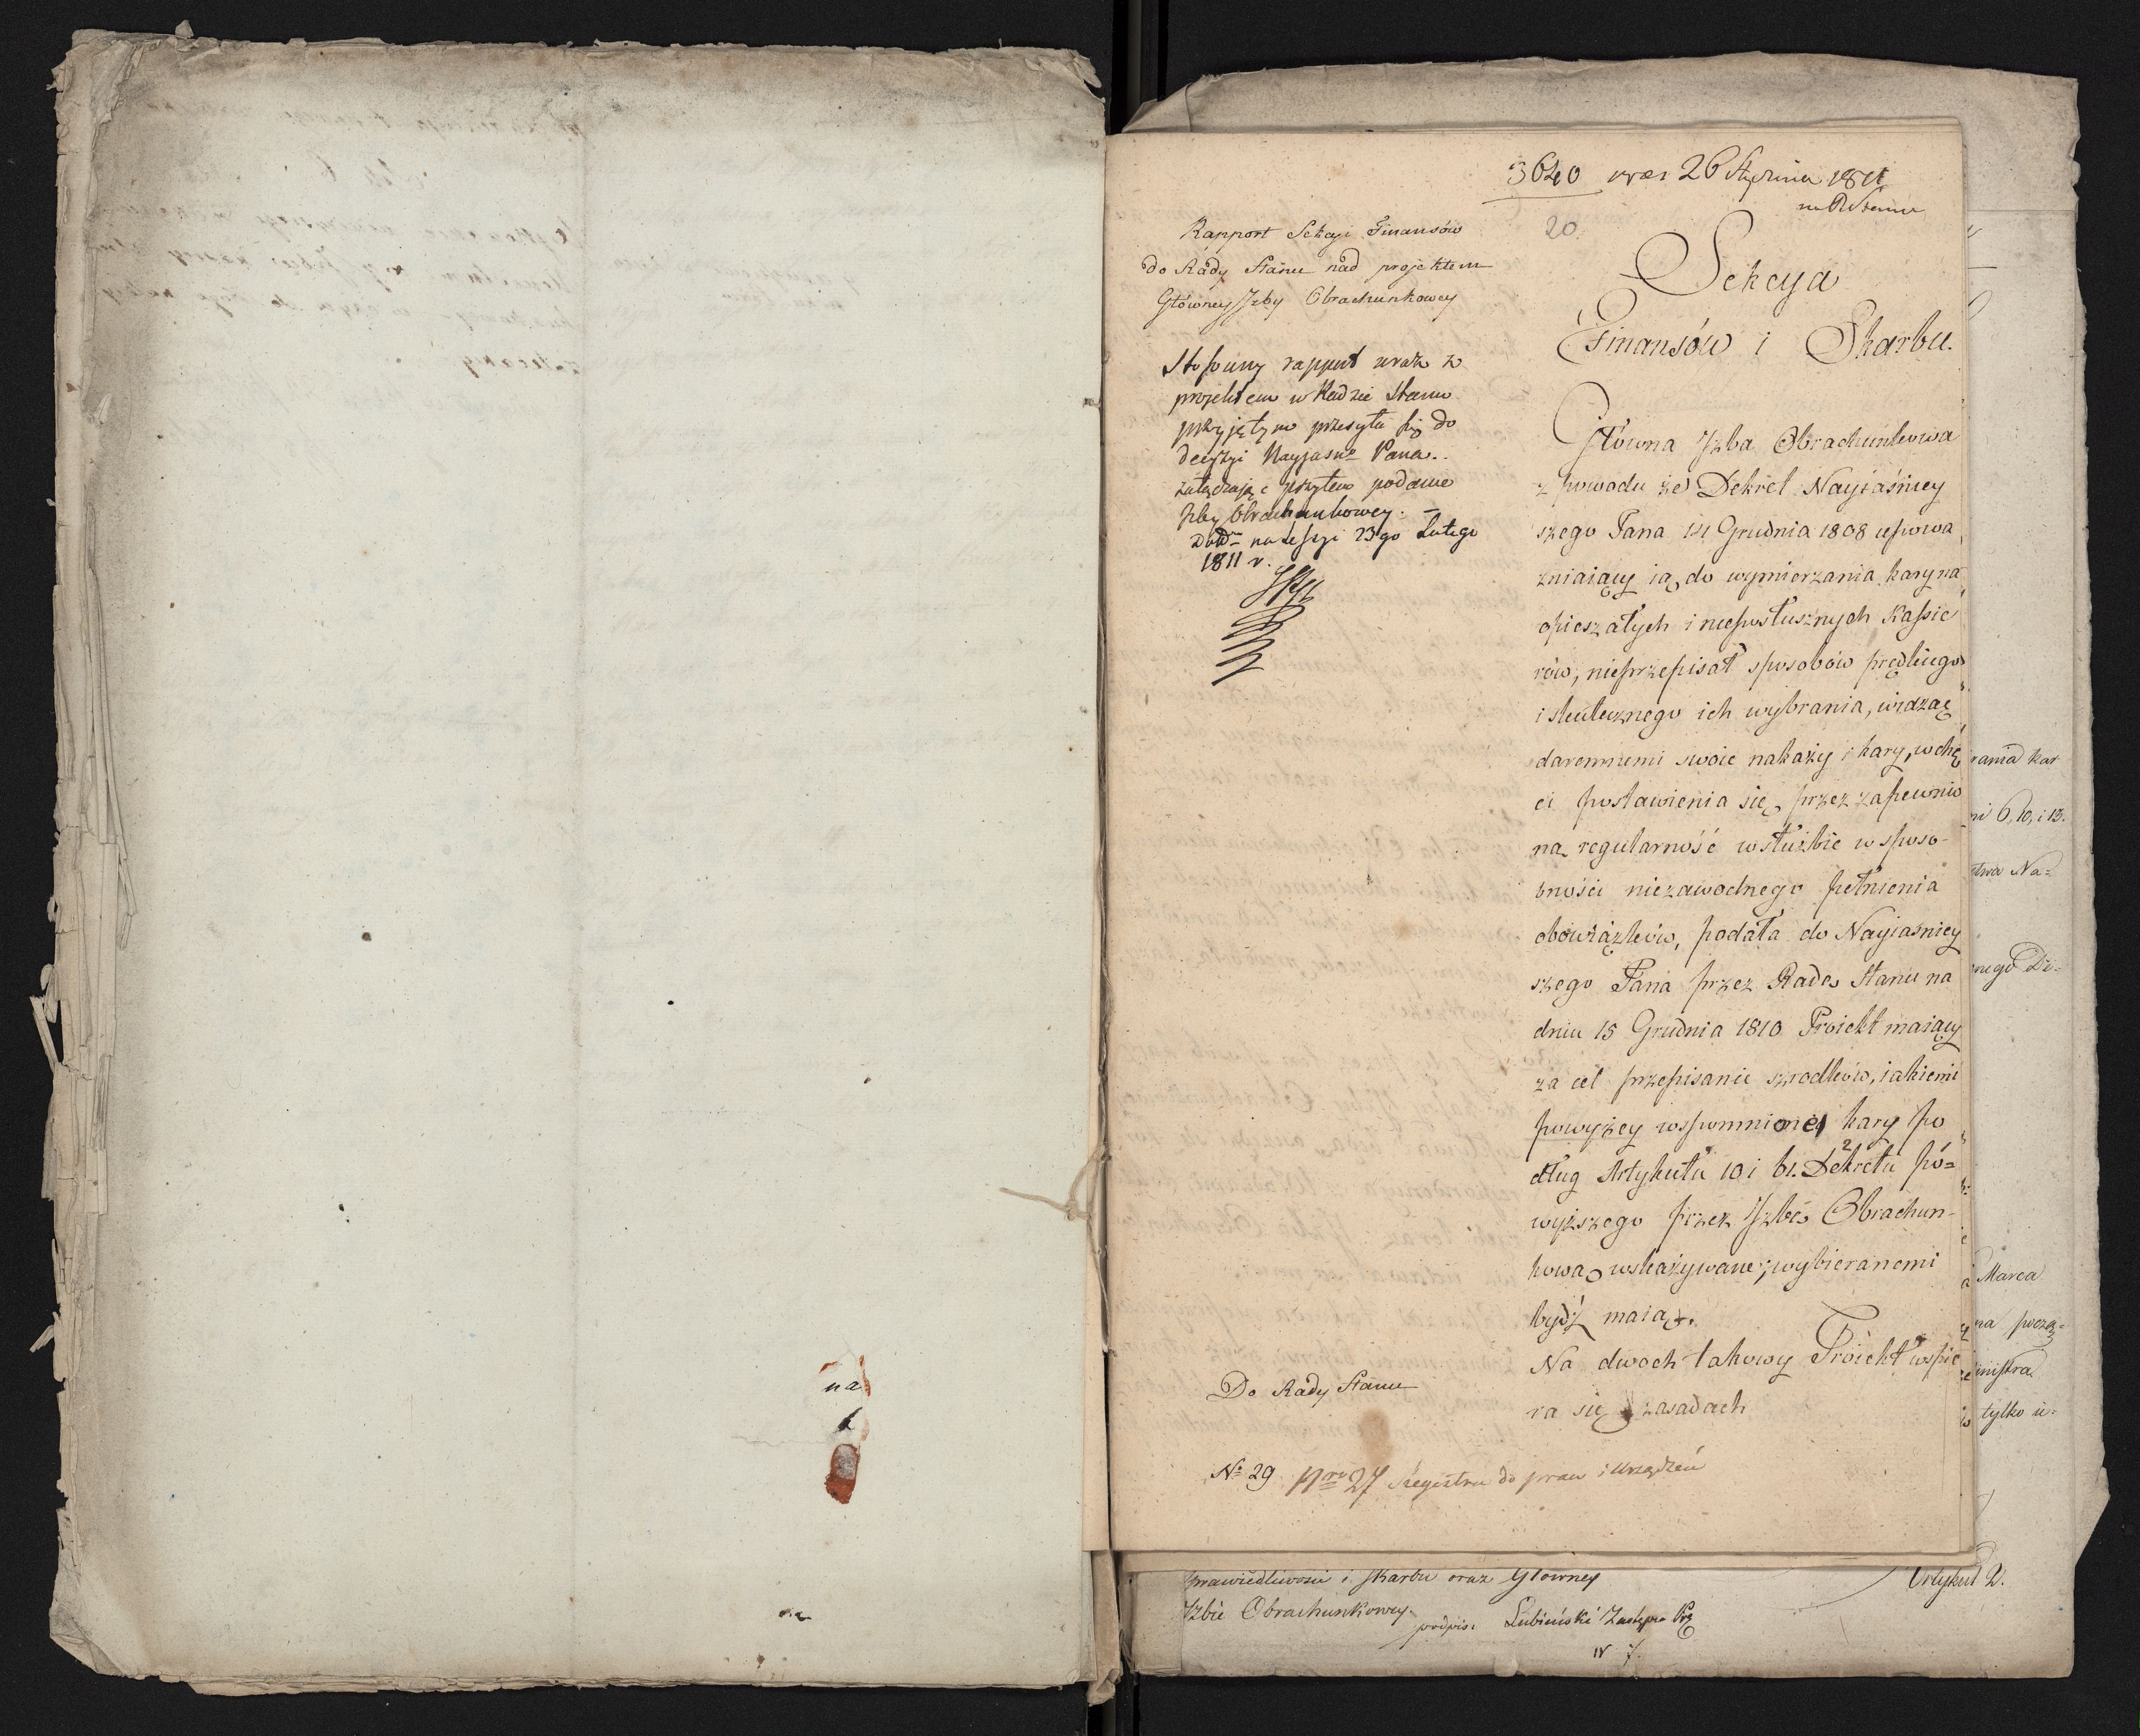 3640 26 Stycznia 1811
20.
Rapport Sekcyi Finansów
do Rády Stanu nad projektem
Główney Izby Obrachunkowey
Stosowny rapport wraz z
projektem w Radzie Stanu
przyjętym przesyła się do
decyzyi Nayjasno Pana..
załączając przytem podanie
Izby Obrachunkowey. –
na Sessyi 23go Lutego
1811 r.
Sekcya
Finansów i Skarbu.
Główna Izba Obrachunkowa
z powodu że Dekret Nayiaśniey
szego Pana 14 Grudnia 1808 upowa
zniaiący ią do wymierzania kary na
opieszałych i nieposłusznych Kassie
rów, nieprzepisał sposobów prędkiego
i skutecznego ich wybrania, widząc
daremnemi swoie nakazy i kary, w chę
ci postawienia się przez zapewnio
na regularność w służbie w sposo-
bności niezawodnego pełnienia
obowiązków, podała do Nayiaśniey
szego Pana przez Radę Stanu na
dniu 15 Grudnia 1810 Proiekt maiący
za cel przepisanie szrodków, iakiemi
powyżey wspomnione kary po
dług Artykułu 10 i 61. Dekretu 2 po=
wyższego przez Izbę Obrachun-
kową wskazywane, wybieranemi
bydź maią.
Na dwoch takowy Proiekt wspie
ra się zasadach
Do Rady Stanu
No 29 Nro 27 Regestru do praw i urządzeń
rania kar
ni 6, 10, i 13.
stwa Na=
nego De=
Marca
na począ=
inistra
tylko u=
Artykuł 2.
sprawiedliwosci i skarbu oraz Głowney
Izbie Obrachunkowey.
podpis: Lubieński Zastępca Prz
na
na